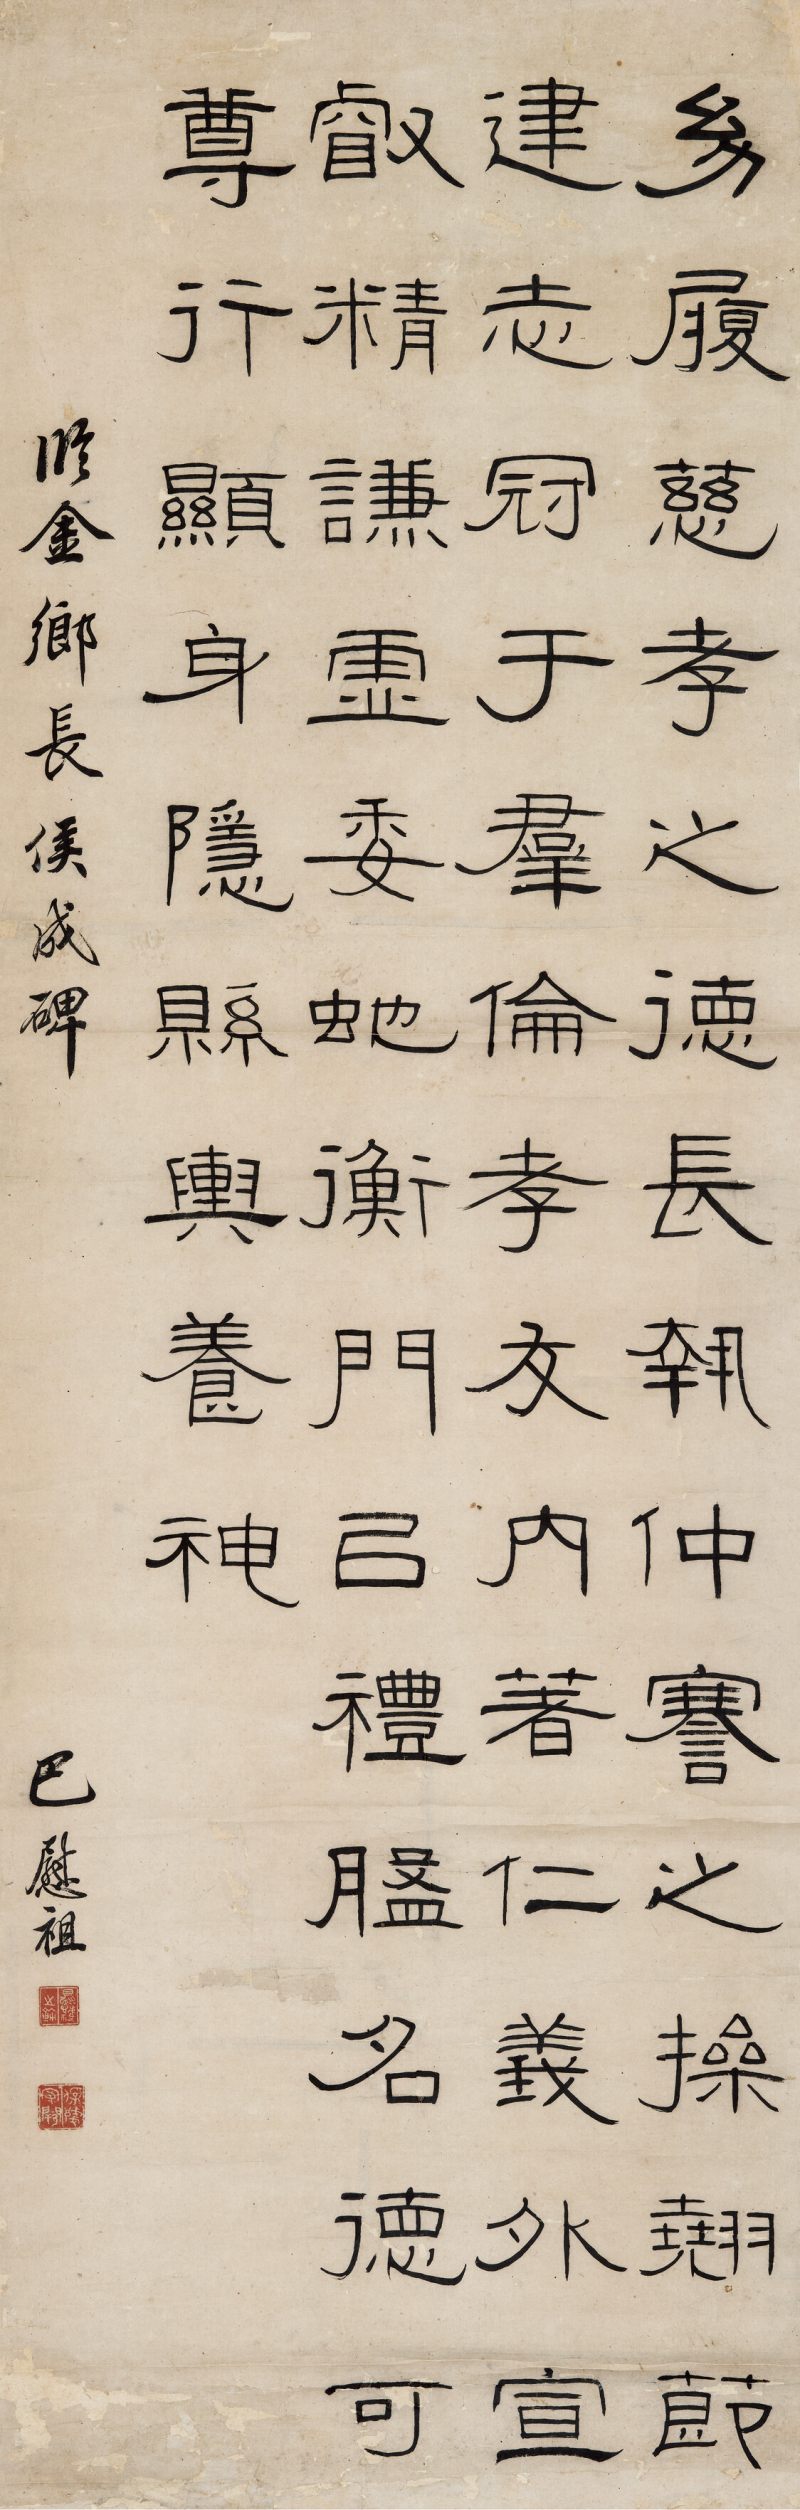 幼履慈孝之德長執仲謇之操翹節
建志冠于羣倫孝友內著仁義外宣
叡精謙虛委虵衡門以禮䀋名德可
尊行顯身隱縣輿養神
臨金鄉長侯成碑
巴慰祖